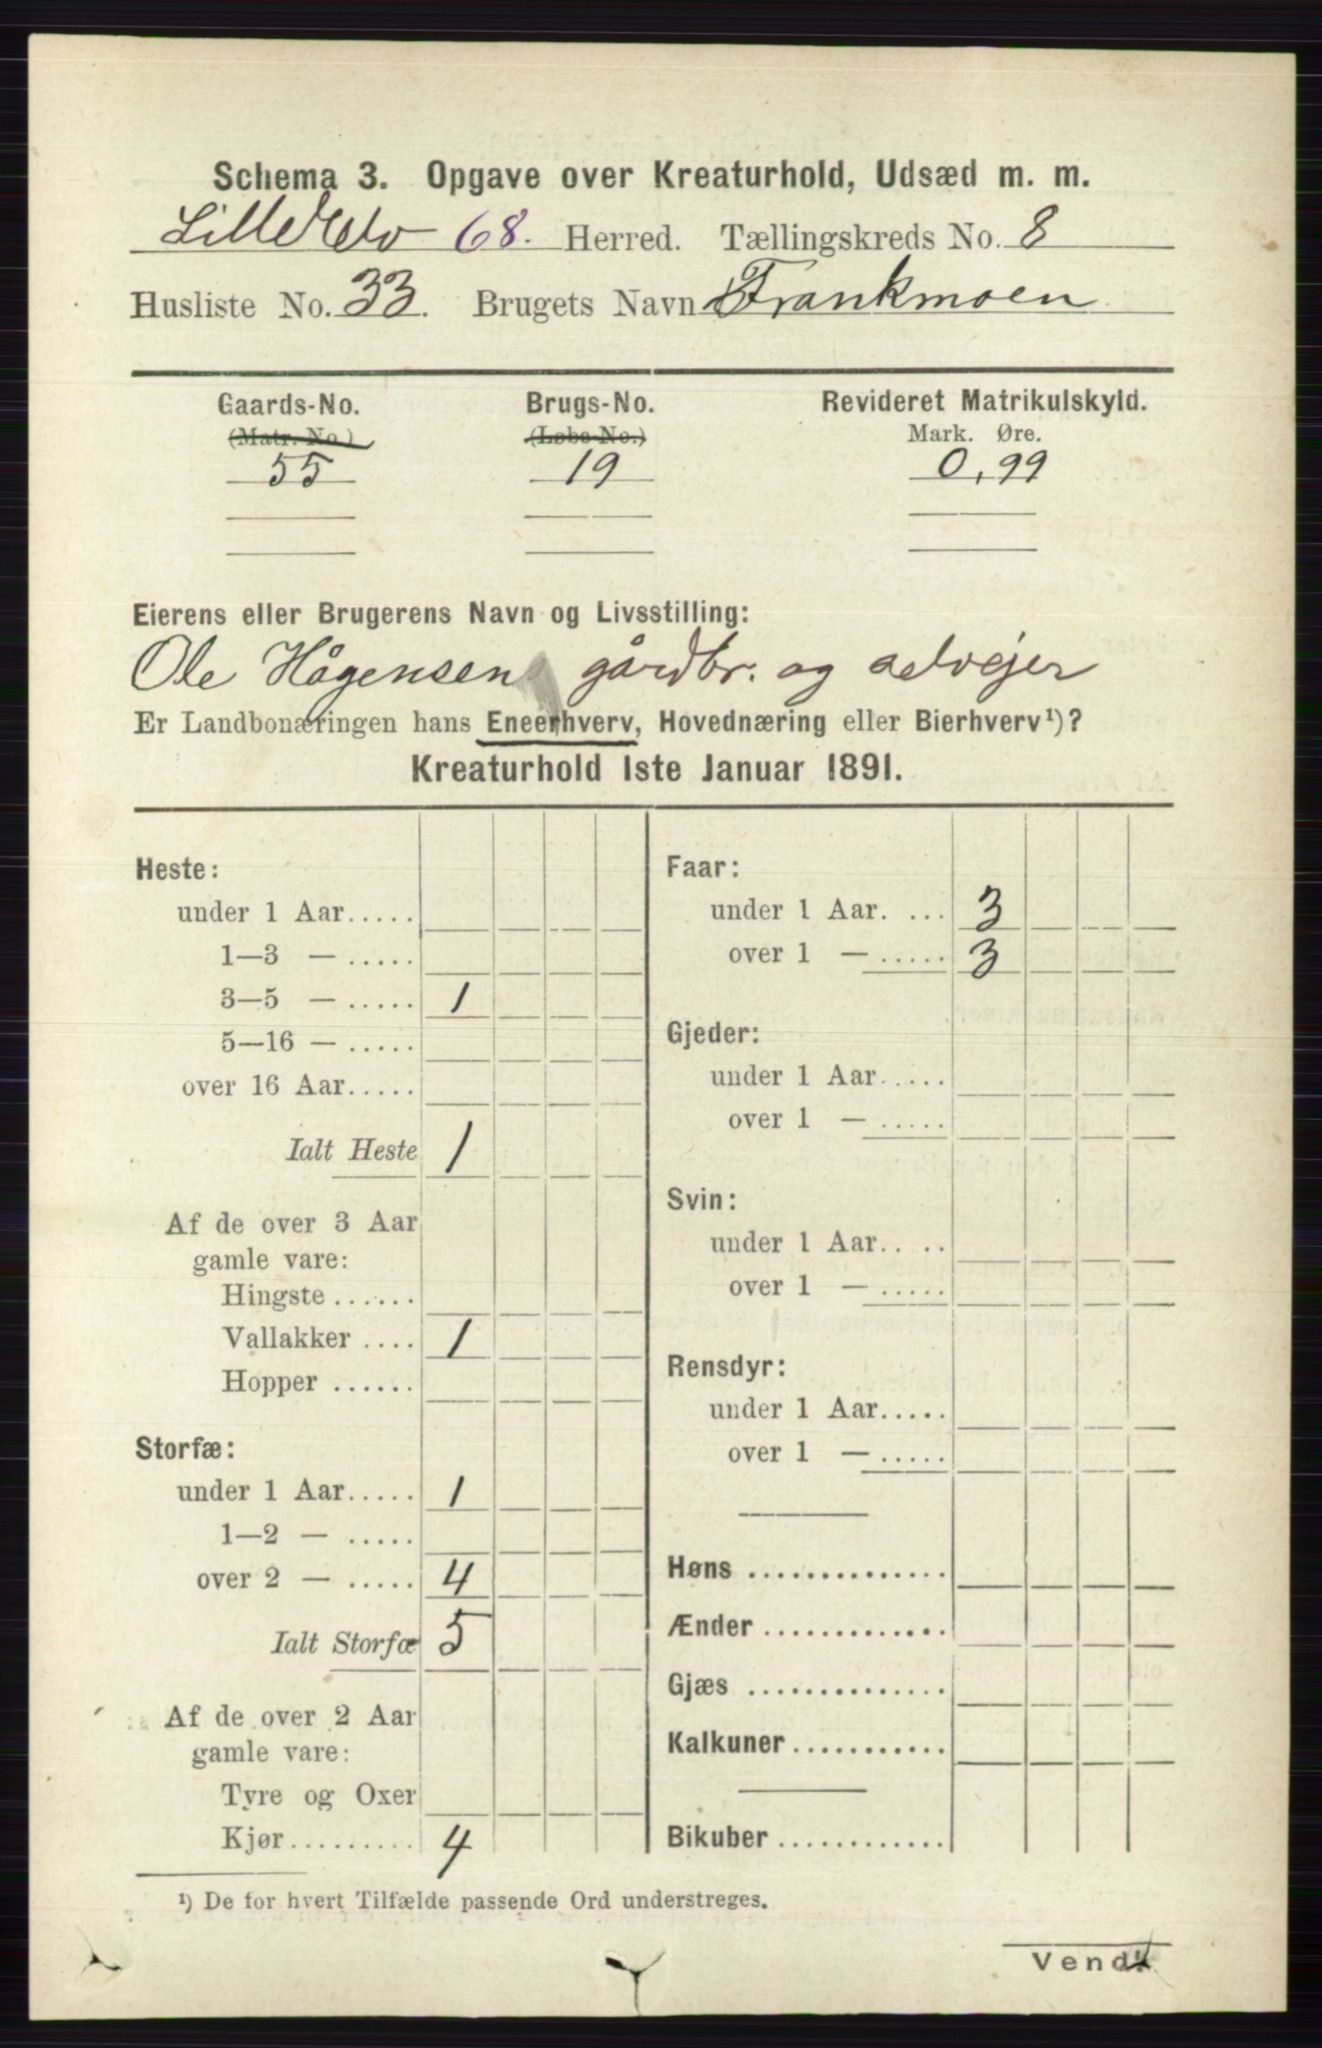 Schema 3. Opgave over Kreaturhold, Udsæd m. m.
Lille Elv 68. Herred. Tællingskreds No. 8
Husliste No. 33. Brugets Navn Frankmoen
Gaards-No. Brugs-No. Revideret Matrikulskyld.
(Matr. No.) (Løbe-No.) Mark. Øre.
55 19 0,99
Eierens eller Brugerens Navn og Livsstilling:
Ole Hågensen gårdbr. og selvejer
Er Landbonæringen hans Eneerhverv, Hovednæring eller Bierhverv¹)?
Kreaturhold 1ste Januar 1891.
Heste:
under 1 Aar.....
1—3 — .....
3—5 — ..... 1
5—16 — .....
over 16 Aar.....
Ialt Heste 1
Af de over 3 Aar
gamle vare:
Hingste......
Vallakker .... 1
Hopper ......
Storfæ:
under 1 Aar..... 1
1—2 — .....
over 2 — ..... 4
Ialt Storfæ 5
Af de over 2 Aar
gamle vare:
Tyre og Oxer
Kjør......... 4
Faar:
under 1 Aar. ... 3
over 1 — ..... 3
Gjeder:
under 1 Aar.....
over 1 — .....
Svin:
under 1 Aar.. ..
over 1 — .....
Rensdyr:
under 1 Aar.....
over 1 — .....
Høns ..............
Ænder .............
Gjæs ..............
Kalkuner...........
Bikuber ............
¹) De for hvert Tilfælde passende Ord understreges.
Vend!